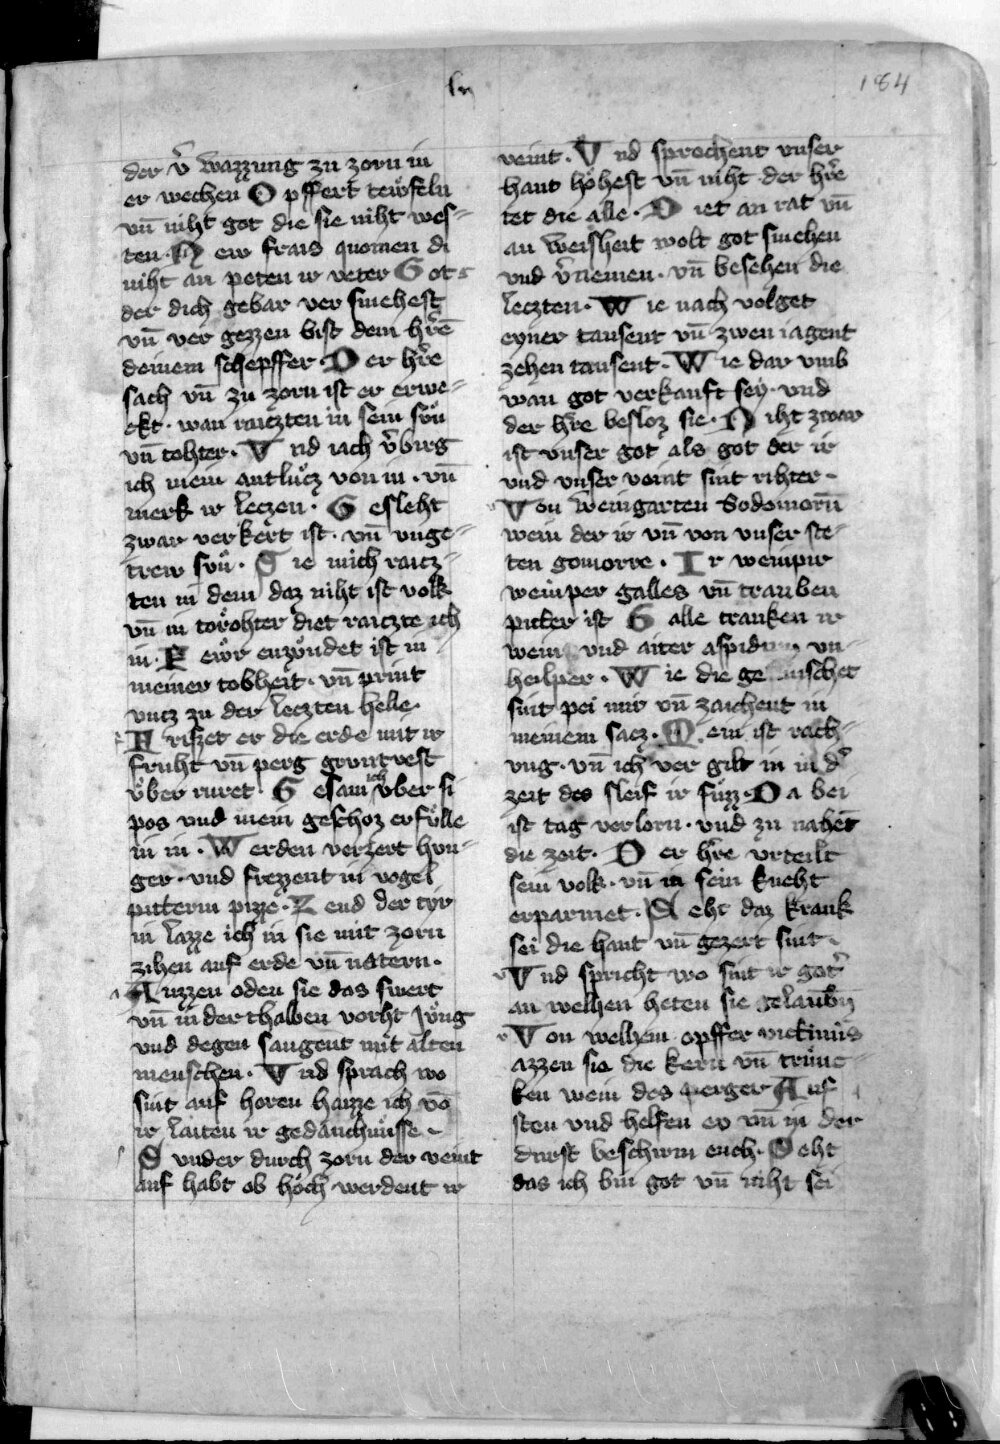 184
der v̄ wazzung zu zorn in
er wechen O pffert tewfeln
vn̄ niht got die sie niht wes=
ten · N ew frais quomen di
niht an peten ir veter G ot
der dich gebar ver smehest
vn̄ ver gezzen bist dem hr̄e
deinem schepffer · D er hr̄e
sach vn̄ zu zorn ist er erwe=
ckt · wan raiczten in sein sün
vn̄ tohter · V nd iach v̄birg
ich mein antlücz von in · vn̄
merk ir leczen · G esleht
zwar verkert ist · vn̄ vnge=
trew sün · S ie mich raicz=
ten in dem daz niht ist volk
vn̄ in törohter diet raiczte ich
in · F ewr enzündet ist in
meiner tobheit · vn̄ print
vncz zu der leczten helle ·
F riszet er die erde mit ir
fruht vn̄ perg gruntvest
über ruret · G esam ich über si
pos vnd mein geschoz erfülle
in in · W erden verzert hun=
ger · vnd frezzent in vogel
pitterm pizze · Z end der tyr
in lazze ich in sie mit zorn
zihen auf erde vn̄ natern ·
A uzzen oden sie das swert
vn̄ inderthalben vorht Jüng
vnd degen saugent mit alten
menschen · V nd sprach wo
sint auf horen hazze ich vō
ir laiten ir gedauchnüsse ·
S vnder durch zorn der veint
auf habt ob höch werdent ir
veint · V nd sprechent vnser
hant höhest vn̄ niht der hr̄e
tet die alle · D iet an rat vn̄
an weisheit wolt got smehen
vnd v̄nemen · vn̄ besehen die
leczten · W ie nach volget
eyner tausent vn̄ zwen iagent
zehen tausent · W ie dar vmb
wan got verkauft sey · vnd
der hr̄e besloz sie · N iht zwar
ist vnser got als got der ir
vnd vnser veint sint rihter ·
V on weingarten Sodomorū
wein der ir vn̄ von vnser ste=
ten gomorre · I r weinpir
weinper galles vn̄ trauben
pitter ist G alle trauken ir
wein vnd aiter aspidum vn=
heilper · W ie die ge mischet
sint pei mir vn̄ zaichent in
meinem sacz · M ein ist rach=
ung · vn̄ ich ver gilt in in d'
zeit des sleif ir füzz · D a bei
ist tag verlorn · vnd zu nahēt
die zeit · D er hr̄e vrteilt
sein volk · vn̄ in sein kneht
erparmet · S eht daz krank
sei die hant vn̄ gezert sint ·
V nd spricht wo sint ir got'
an welhen heten sie gelaubn̄
V on welhem opffer victimis
azzen sie die kern vn̄ trunc=
ken wein des perger A uf
sten vnd helfen ev vn̄ in der
durft beschirm euch · S eht
das ich bin got vn̄ niht sei